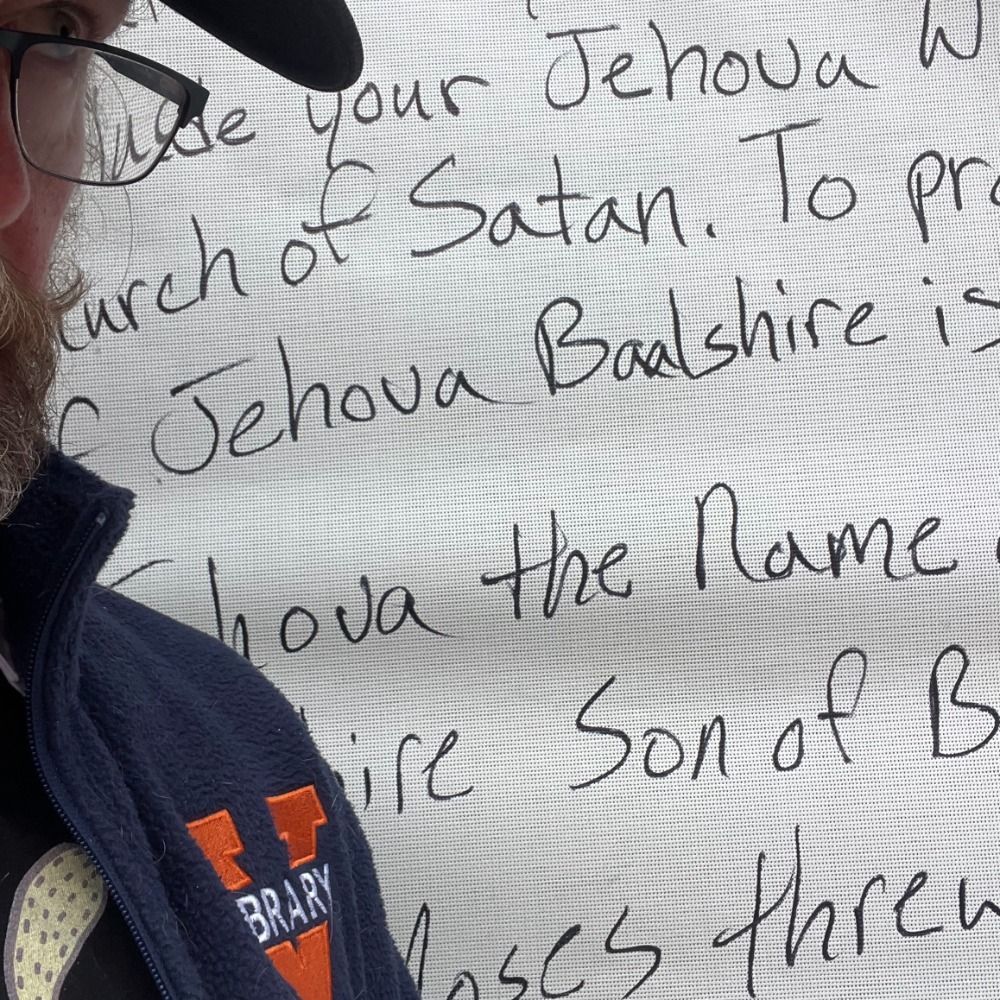 your Jehova W
urch of Satan. To pro
f Jehova Baalshire is
hova the Name
ire Son of B
oses threw
V
BRARY